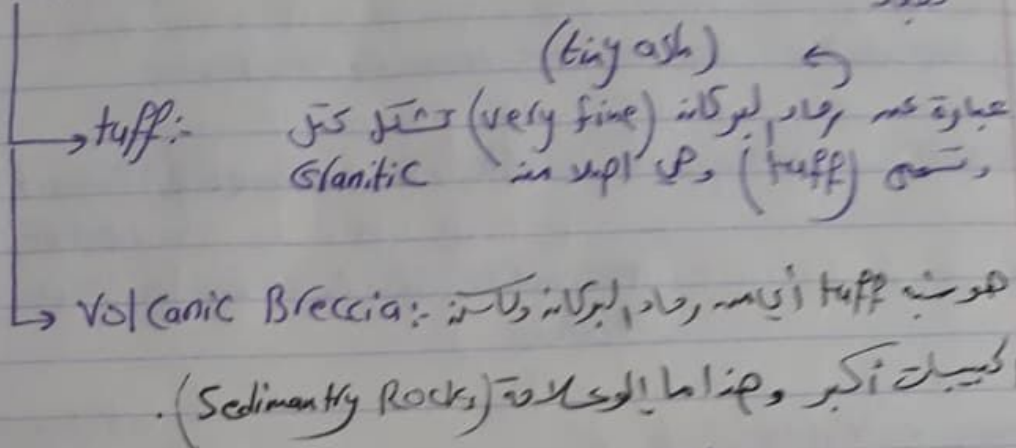 (tiny ash)
tuff:- عبارة عن رماد البركان (very fine) تشكل كتل
وتسمى (tuff) وهي اصلا من Glanitic
Volcanic Breccia:- هو شبه tuff أي من رماد البركان ولكن
حبيبات أكبر وهذا ما إلو علاقة (Sedimantry Rocks).